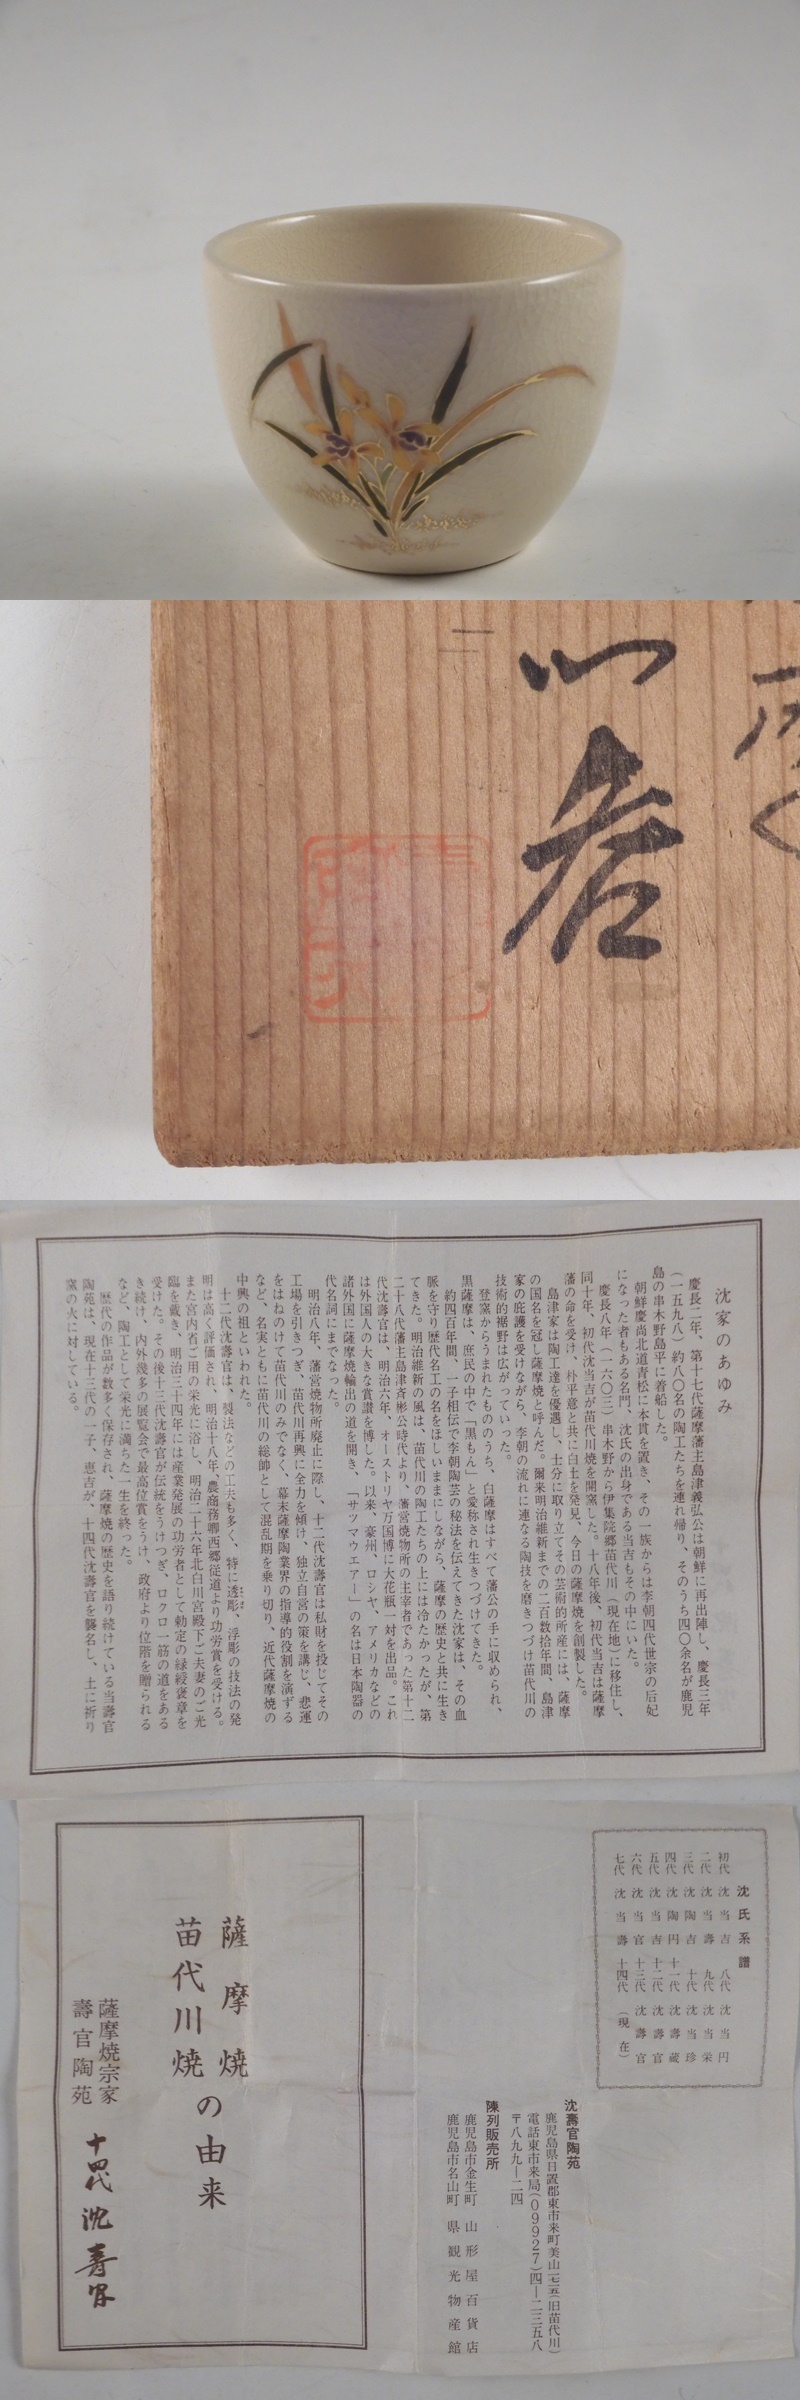 心岩
沈家のあゆみ
慶長二年、第十七代薩摩藩主島津義弘公は朝鮮に再出陣し、慶長三年
(一五九八)約八〇名の陶工たちを連れ帰り、そのうち四〇余名が鹿児
島の串木野島平に着船した。
朝鮮慶尚北道青松に本貫を置き、その一族からは李朝四代世宗の后妃
になった者もある名門、沈氏の出身である当吉もその中にいた。
慶長八年(一六〇三)串木野から伊集院郷苗代川(現在地)に移住し、
同十年、初代沈当吉が苗代川焼を開窯した。十八年後、初代当吉は薩摩
藩の命を受け、朴平意と共に白土を発見、今日の薩摩焼を創製した。
島津家は陶工達を優遇し、士分に取り立てその芸術的所産には、薩摩
の国名を冠し薩摩焼と呼んだ。爾来明治維新までの二百数拾年間、島津
家の庇護を受けながら、李朝の流れに連なる陶技を磨きつづけ苗代川の
技術的裾野は広がっていった。
登窯からうまれたもののうち、白薩摩はすべて藩公の手に収められ、
黒薩摩は、庶民の中で「黒もん」と愛称され生きつづけてきた。
約四百年間、一子相伝で李朝陶芸の秘法を伝えてきた沈家は、その血
脈を守り歴代名工の名をほしいままにしながら、薩摩の歴史と共に生き
てきた。明治維新の風は、苗代川の陶工たちの上には冷たかったが、第
二十八代藩主島津斉彬公時代より、藩営焼物所の主宰者であった第十二
代沈壽官は、明治六年、オーストリヤ万国博に大花瓶一対を出品。これ
は外国人の大きな賞讃を博した。以来、豪州、ロシヤ、アメリカなどの
諸外国に薩摩焼輸出の道を開き、「サツマウエアー」の名は日本陶器の
代名詞にまでなった。
明治八年、藩営焼物所廃止に際し、十二代沈壽官は私財を投じてその
工場を引きつぎ、苗代川再興に全力を傾け、独立自営の策を講じ、悲運
をはねのけて苗代川のみでなく、幕末薩摩陶業界の指導的役割を演ずる
など、名実ともに苗代川の総帥として混乱期を乗り切り、近代薩摩焼の
中興の祖といわれた。
十二代沈壽官は、製法などの工夫も多く、特に透彫、浮彫の技法の発
明は高く評価され、明治十八年、農商務卿西郷従道より功労賞を受ける。
また宮内省ご用の栄光に浴し、明治二十六年北白川宮殿下ご夫妻のご光
臨を戴き、明治三十四年には産業発展の功労者として勅定の緑綬褒章を
受けた。その後十三代沈壽官が伝統をうけつぎ、ロクロ一筋の道をある
き続け、内外幾多の展覧会で最高位賞をうけ、政府より位階を贈られる
など、陶工として栄光に満ちた一生を終った。
歴代の作品が数多く保存され、薩摩焼の歴史を語り続けている当壽官
陶苑は、現在十三代の一子、恵吉が、十四代沈壽官を襲名し、土に祈り
窯の火に対している。
沈氏系譜
初代 沈当吉 八代 沈当円
二代 沈当壽 九代 沈当栄
三代 沈陶吉 十代 沈当珍
四代 沈陶円 十一代 沈壽蔵
五代 沈当吉 十二代 沈壽官
六代 沈当官 十三代 沈壽官
七代 沈当壽 十四代 (現在)
沈壽官陶苑
鹿児島県日置郡東市来町美山一七一五(旧苗代川)
電話東市来局(09927)四―二三五八
〒八九九―二四
陳列販売所
鹿児島市金生町 山形屋百貨店
鹿児島市名山町 県観光物産館
薩摩焼
苗代川焼の由来
薩摩焼宗家
壽官陶苑
十四代 沈壽官